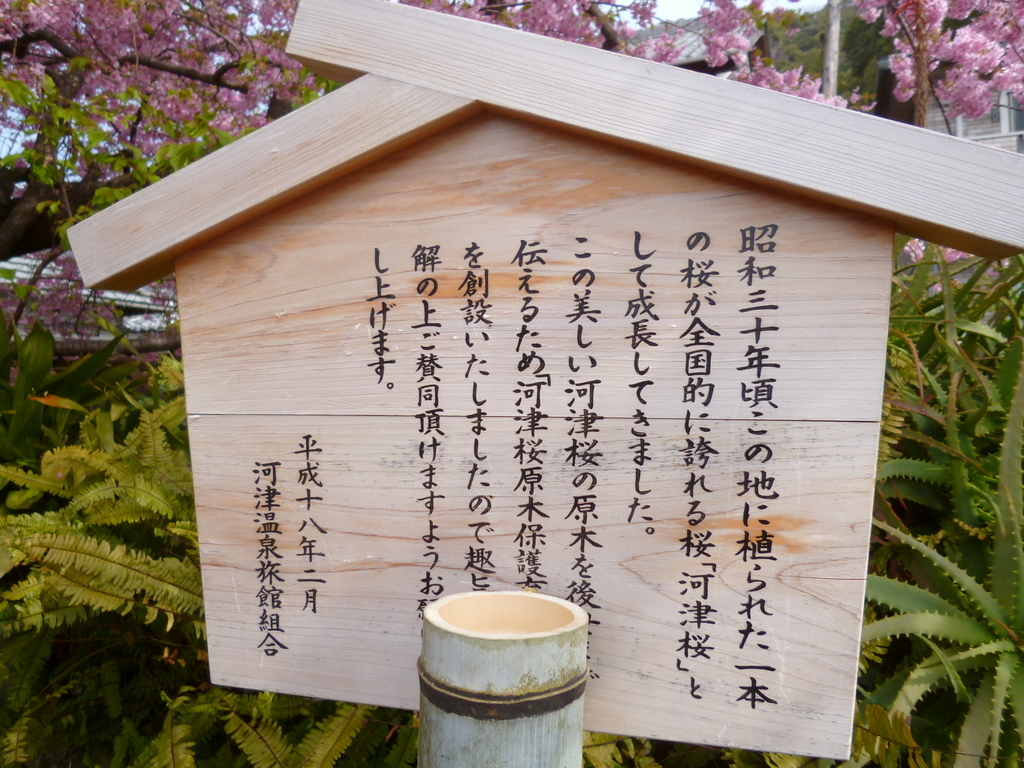 昭和三十年頃この地に植られた一本
の桜が全国的に誇れる桜「河津桜」と
して成長してきました。
この美しい河津桜の原木を後
伝えるため「河津桜原木保護
を創設いたしましたので趣旨
解の上ご賛同頂けますようお願
し上げます。
平成十八年二月
河津温泉旅館組合